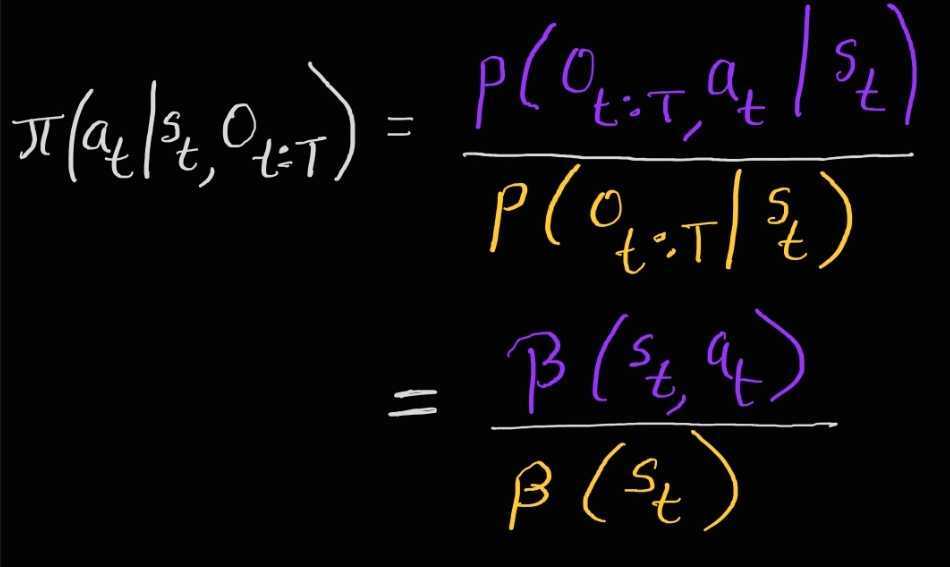 π(a_t|s_t, O_{t:T}) = P(O_{t:T}, a_t | s_t) / P(O_{t:T} | s_t)
= β(s_t, a_t) / β(s_t)